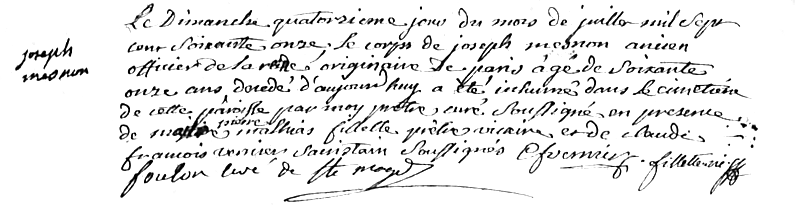 joseph
mesnon
Le Dimanche quatorzieme jour du mois de juillet mil sept
cent soixante onze, le corps de joseph mesnon ancien
officier de la originaire de paris âgé de soixante
onze ans decedé d'aujourd'huy a été inhumé dans le cimetiere
de cette paroisse par moy prêtre curé soussigné en presence
de maistre pierre mathias fillette prêtre vicaire et de claude
françois vernier sacristain soussignés C f vernier fillette
foulon curé de ste